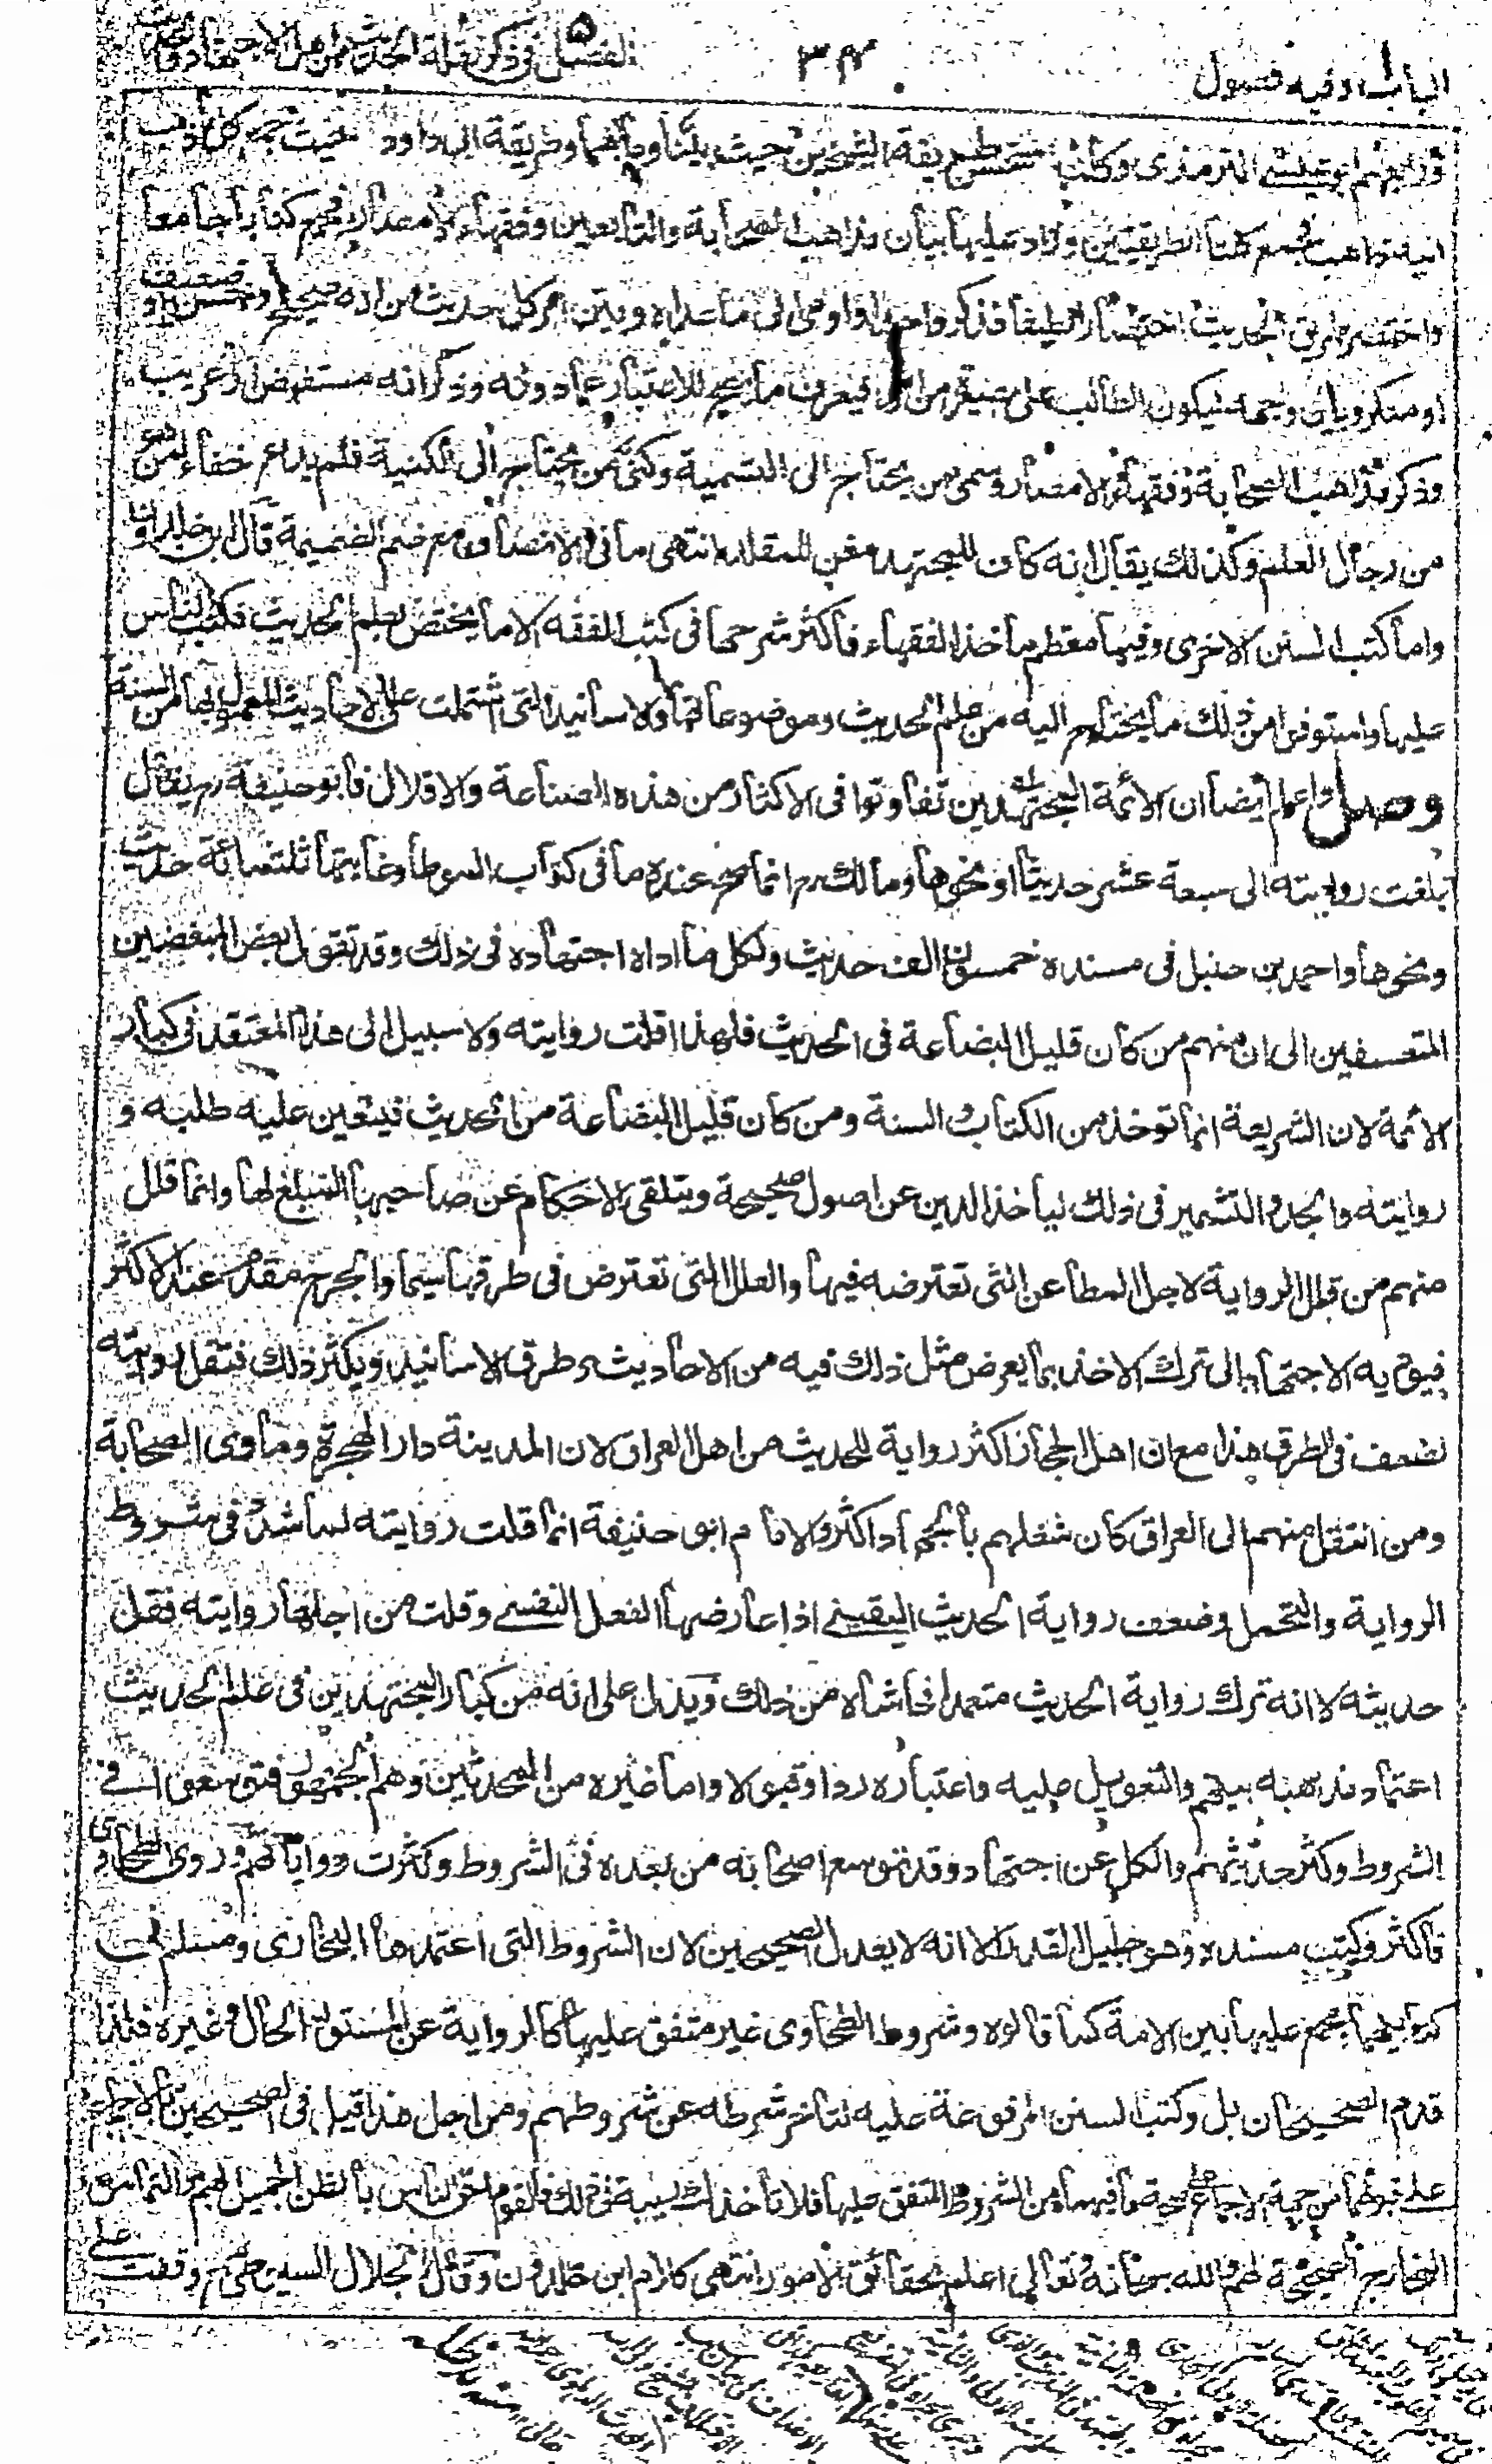 الباب ا وفيه فصول ٣٤ الفصل ٥ فى ذكر نقلة الحديث من اهل الاجتهاد
ورابعهم ابو عيسى الترمذى وكانه استحسن طريقة الشيخين حيث بينا وما ابهما وطريقة ابى داود حيث جمع كل ما ذهب
اليه ذاهب فجمع كلتا الطريقتين وزاد عليها بيان مذاهب الصحابة والتابعين وفقهاء الامصار فجمع كتابا جامعا
واختصر طرق الحديث اختصارا لطيفا فذكر واحدا واومى الى ما عداه وبين امر كل حديث من انه صحيح او حسن او ضعيف
او منكر وبين وجه ليكون الطالب على بصيرة من فيعرف ما يصح للاعتبار عما دونه وذكر انه مستفيض او غريب
وذكر مذاهب الصحابة وفقهاء الامصار وسمى من يحتاج الى التسمية وكنى من يحتاج الى الكنية فلم يدع خفاء لمن هو
من رجال العلم وكذلك يقال انه كاف للمجتهد مغن للمقلد انتهى ما فى الانصاف مع ضم الضميمة قال ابن خلدون
واما كتب السنن الاخرى وفيها معظم مأخذ الفقهاء فاكثر شرحها فى كتب الفقه الا ما يختص بعلم الحديث فكتب الناس
عليها واستوفوا من ذلك ما يحتاج اليه من علم الحديث وموضوعاتها والاسانيد التى اشتملت على الاحاديث المعمول بها من السنة
وصل واعلم ايضا ان الائمة المجتهدين تفاوتوا فى الاكثار من هذه الصناعة والاقلال فابو حنيفة رح يقال
بلغت روايته الى سبعة عشر حديثا او نحوها ومالك رح انما صح عنده ما فى كتاب الموطا وغايتها ثلثمائة حديث
ونحوها واحمد بن حنبل فى مسنده خمسون الف حديث ولكل ما اداه اجتهاده فى ذلك وقد تقول بعض المبغضين
المتعسفين الى ان منهم من كان قليل البضاعة فى الحديث فلهذا قلت روايته ولا سبيل الى هذا المعتقد فى كبار
الائمة لان الشريعة انما تؤخذ من الكتاب والسنة ومن كان قليل البضاعة من الحديث فيتعين عليه طلبه و
روايته والجد والتشمير فى ذلك ليأخذ الدين عن اصول صحيحة ويتلقى الاحكام عن صاحبها المبلغ لها وانما قلل
منهم من قلل الرواية لاجل المطاعن التى تعترضه فيها والعلل التى تعترض فى طرقها سيما والجرح مقدم عند الاكثر
فيؤديه الاجتهاد الى ترك الاخذ بما يعرض مثل ذلك فيه من الاحاديث وطرق الاسانيد ويكثر ذلك فتقل روايته
لضعف فى الطرق هذا مع ان اهل الحجاز اكثر رواية للحديث من اهل العراق لان المدينة دار الهجرة ومأوى الصحابة
ومن انتقل منهم الى العراق كان شغلهم بالجهاد اكثر والامام ابو حنيفة انما قلت روايته لما شدد فى شروط
الرواية والتحمل وضعف رواية الحديث اليقينى اذا عارضها الفعل النفسى وقلت من اجلها روايته فقل
حديثه لا انه ترك رواية الحديث متعمدا فحاشاه من ذلك ويدل على انه من كبار المجتهدين فى علم الحديث
اعتماد مذهبه بينهم والتعويل عليه واعتباره ردا وقبولا واما غيره من المحدثين وهم الجمهور فتوسعوا فى
الشروط وكثر حديثهم والكل عن اجتهاد وقد توسع اصحابه من بعده فى الشروط وكثرت رواياتهم وروى الطحاوى
فاكثر وكتب مسنده وهو جليل القدر الا انه لا يعدل الصحيحين لان الشروط التى اعتمدها البخارى ومسلم فى
كتابيهما مجمع عليها بين الامة كما قالوه وشروط الطحاوى غير متفق عليها كالرواية عن المستور الحال وغيره فلذا
قدم الصحيحان بل وكتب السنن المعروفة عليه لتأخر شرطه عن شروطهم ومن اجل هذا قيل فى الصحيحين بالاجماع
على قبولهما من جهة الاجماع على صحة ما فيهما من الشروط المتفق عليها فلا تأخذك ريبة فى ذلك فالقوم احق الناس بالظن الجميل بهم والتماس
المخارج الصحيحة لهم والله سبحانه وتعالى اعلم بحقائق الامور انتهى كلام ابن خلدون وقال الجلال السيوطى رح وقفت على